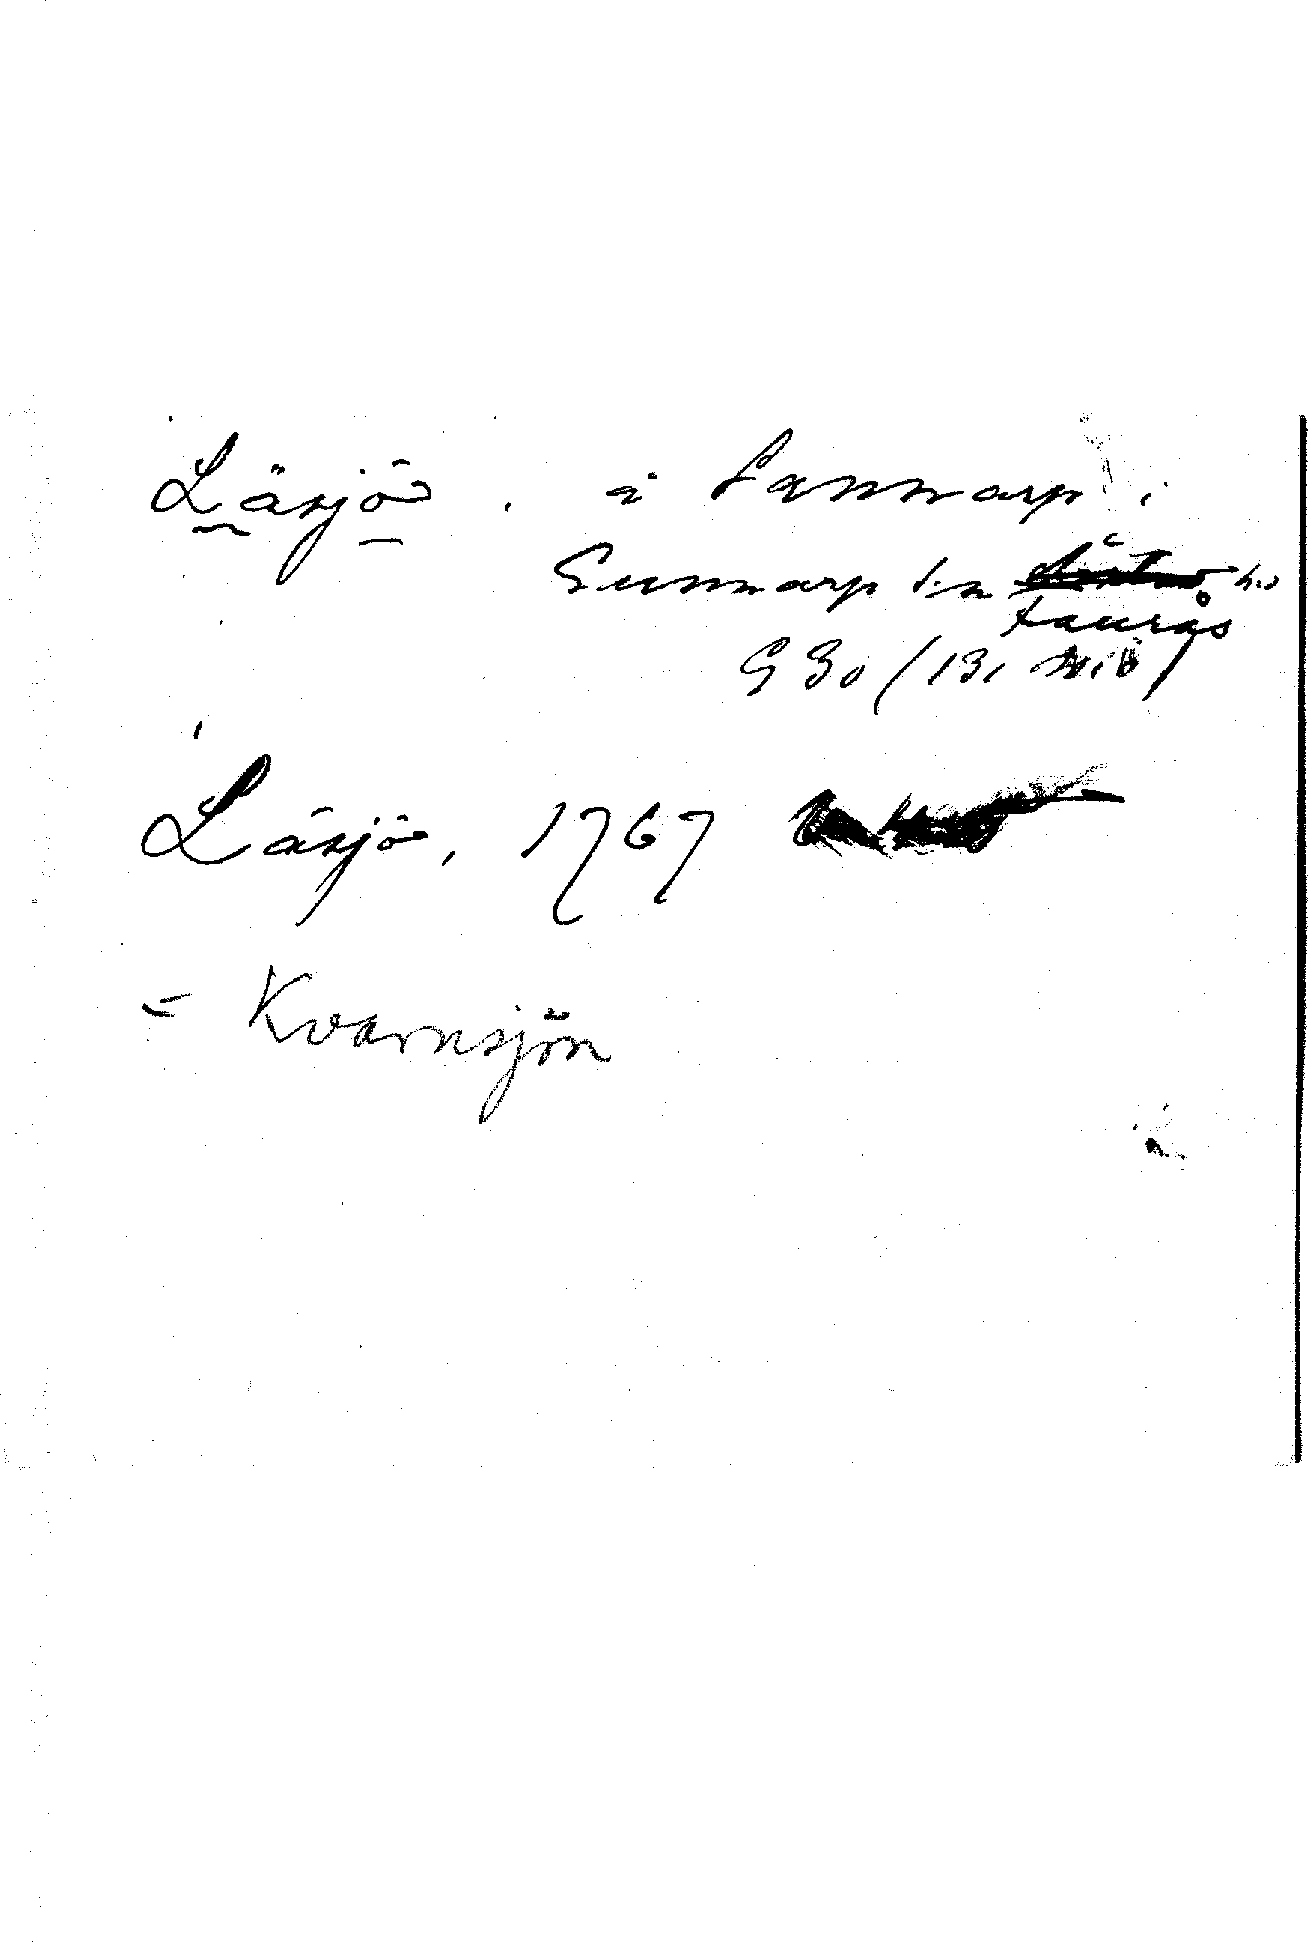 Läsjö. å Sannarp i
Gunnarp s:n h:d
Fauras
G 30 / 131
Läsjö, 1767
= Kvarnsjön